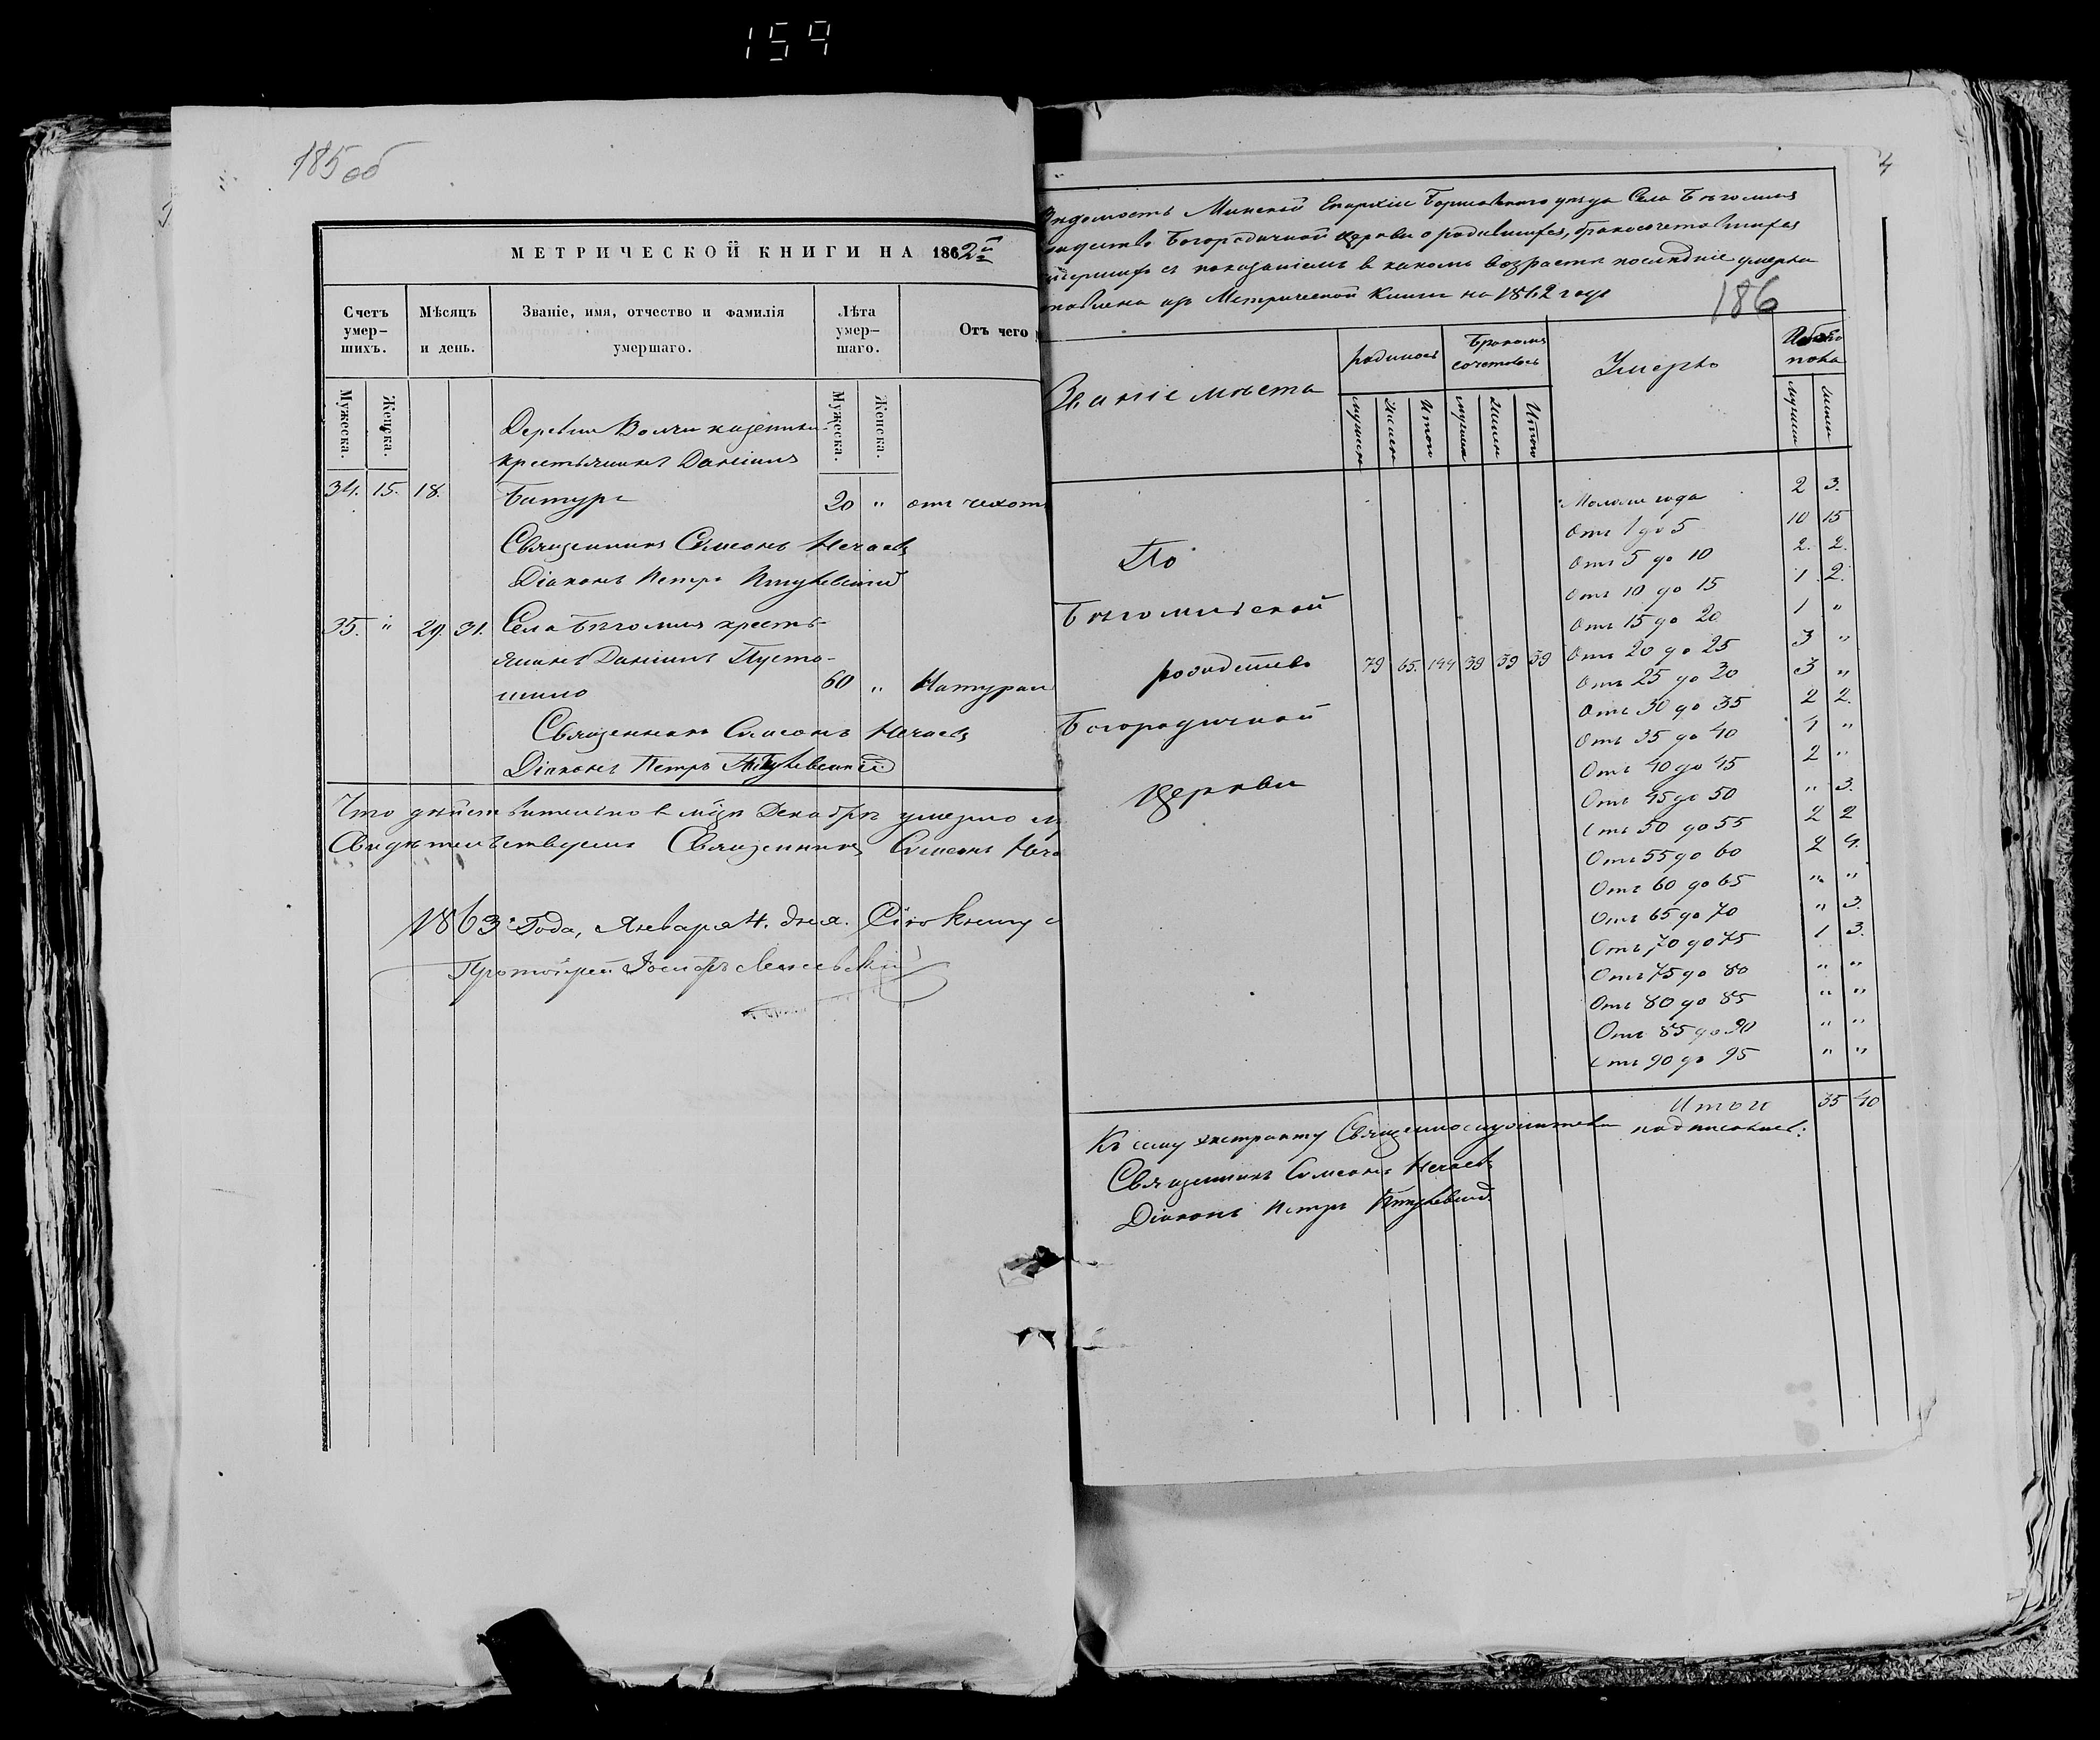 159
185об
МЕТРИЧЕСКОЙ КНИГИ НА 1862й
Счетъ умер-
шихъ.
Мѣсяцъ
и день.
Званіе, имя, отчество и фамилія
умершаго.
Лѣта
умер-
шаго.
Отъ чего
Мужеска.
Женска.
Мужеска.
Женска.
Деревни Волчи казенный
крестьянинъ Даніилъ
34. 15. 18. Батура 20 " отъ чахот
Священникъ Симеонъ Нечаевъ
Діаконъ Петръ
35. " 29. 31. Села Бѣгомля кресть-
янинъ Даніилъ Пусто-
60 " Натурал
Священникъ Симеонъ Нечаевъ
Діаконъ Петръ
Что дѣйствительно в мцѣ Декабрѣ умерло
Свидѣтельствуемъ Священникъ Симеонъ Неча
1863 Года, Января 4. дня. Сію книгу
Протоіерей
4
Минской Епархіи Борисовскаго уѣзда Села Бѣгомля
Богородичной Церкви о родившихся, бракосочетавшихся
съ показаніемъ в какомъ возрастѣ послѣдніе умерли
изъ Метрической Книги на 1862 годъ
186
Званіе мѣста
родилось
Бракомъ
сочеталось
Умерло
пола
Итого
Итого
Моложе года 2 3.
Отъ 1 до 5 10 15
Отъ 5 до 10 2. 2.
Отъ 10 до 15 1 2.
Отъ 15 до 20 1 "
Отъ 20 до 25 3 "
Отъ 25 до 30 3 "
Отъ 30 до 35 2 2.
Отъ 35 до 40 1 "
Отъ 40 до 45 2 "
Отъ 45 до 50 " 3.
Отъ 50 до 55 2 2
Отъ 55 до 60 2 4.
Отъ 60 до 65 " "
Отъ 65 до 70 " 3.
Отъ 70 до 75 1 3.
Отъ 75 до 80 " "
Отъ 80 до 85 " "
Отъ 85 до 90 " "
Отъ 90 до 95 " "
По
Бѣгомльской
рождество 79 65. 144 39 39 39
Богородичной
Церкви
Итого 35 40
Къ сему экстракту Священнослужители подписались:
Священникъ Симеонъ Нечаевъ
Діаконъ Петръ